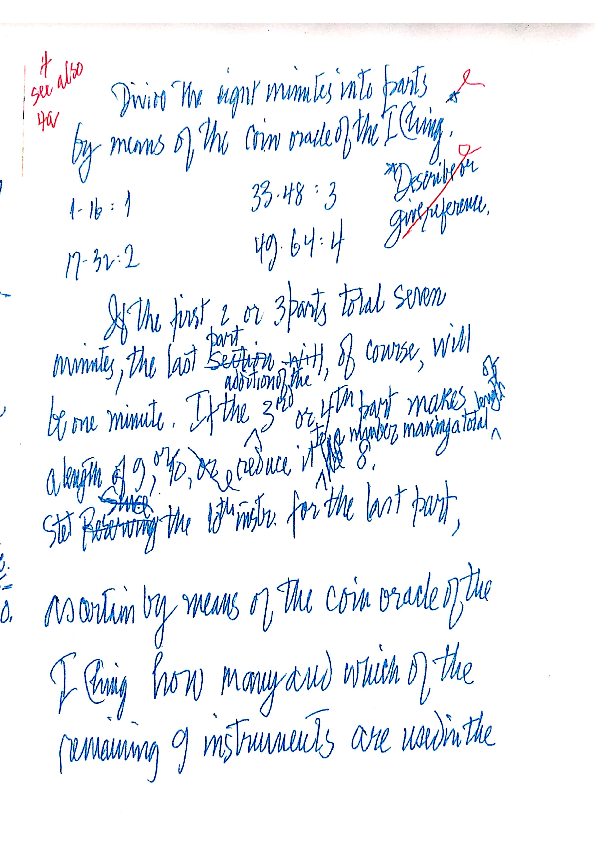 #
see also
4a
Divide the eight minutes into parts
by means of the coin oracle of the I Ching.*
1-16 : 1
33-48 : 3
17-32 : 2
49-64 : 4
*Describe or
give reference.
If the first 2 or 3 parts total seven
part
minutes, the last section will, of course, will
addition of the
be one minute. If the 3rd or 4th part makes
a length of 9, or 10, or reduce it to the number making a total of length 8.
Since
Stet Reserving the 10th instr. for the last part,
ascertain by means of the coin oracle of the
I Ching how many and which of the
remaining 9 instruments are used in the